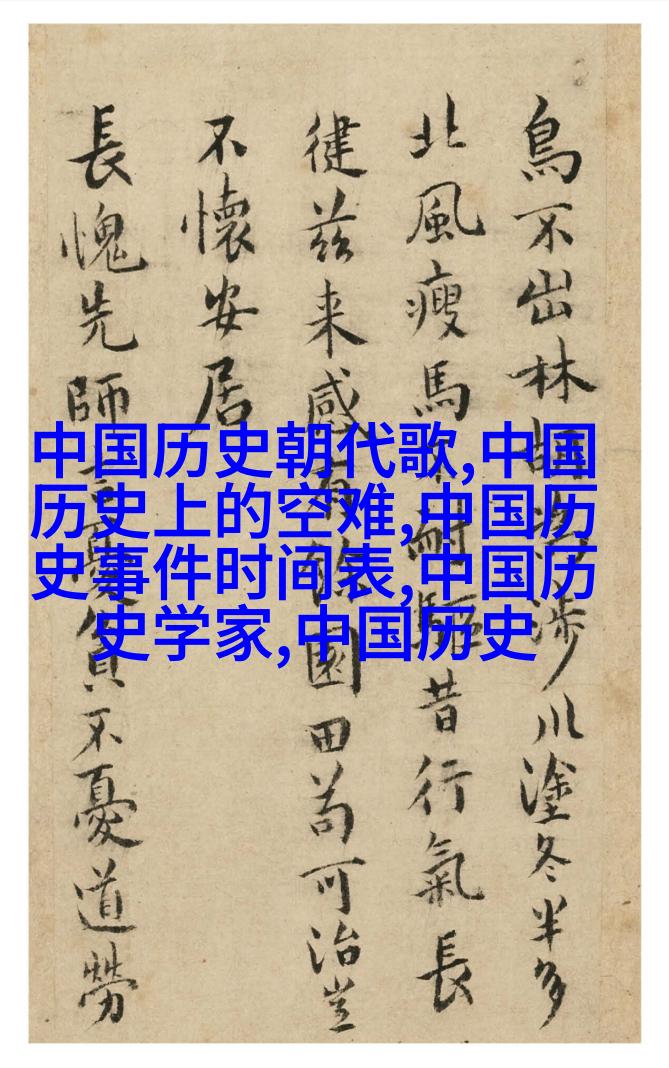 鳥不出林胡為涉川塗冬半多
北風瘦馬不耐驅昔行氣長
健茲来感餘園田苟可治豈
不懷安居
長愧先師憂貧不憂道勞
中国历史朝代歌,中国
历史上的空难,中国历
史事件时间表,中国历
史学家,中国历史